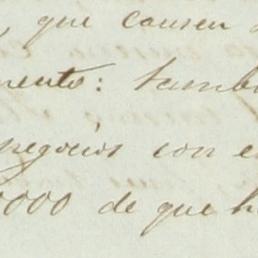 que causen
mento: tambi
negocios con e
000 de que h